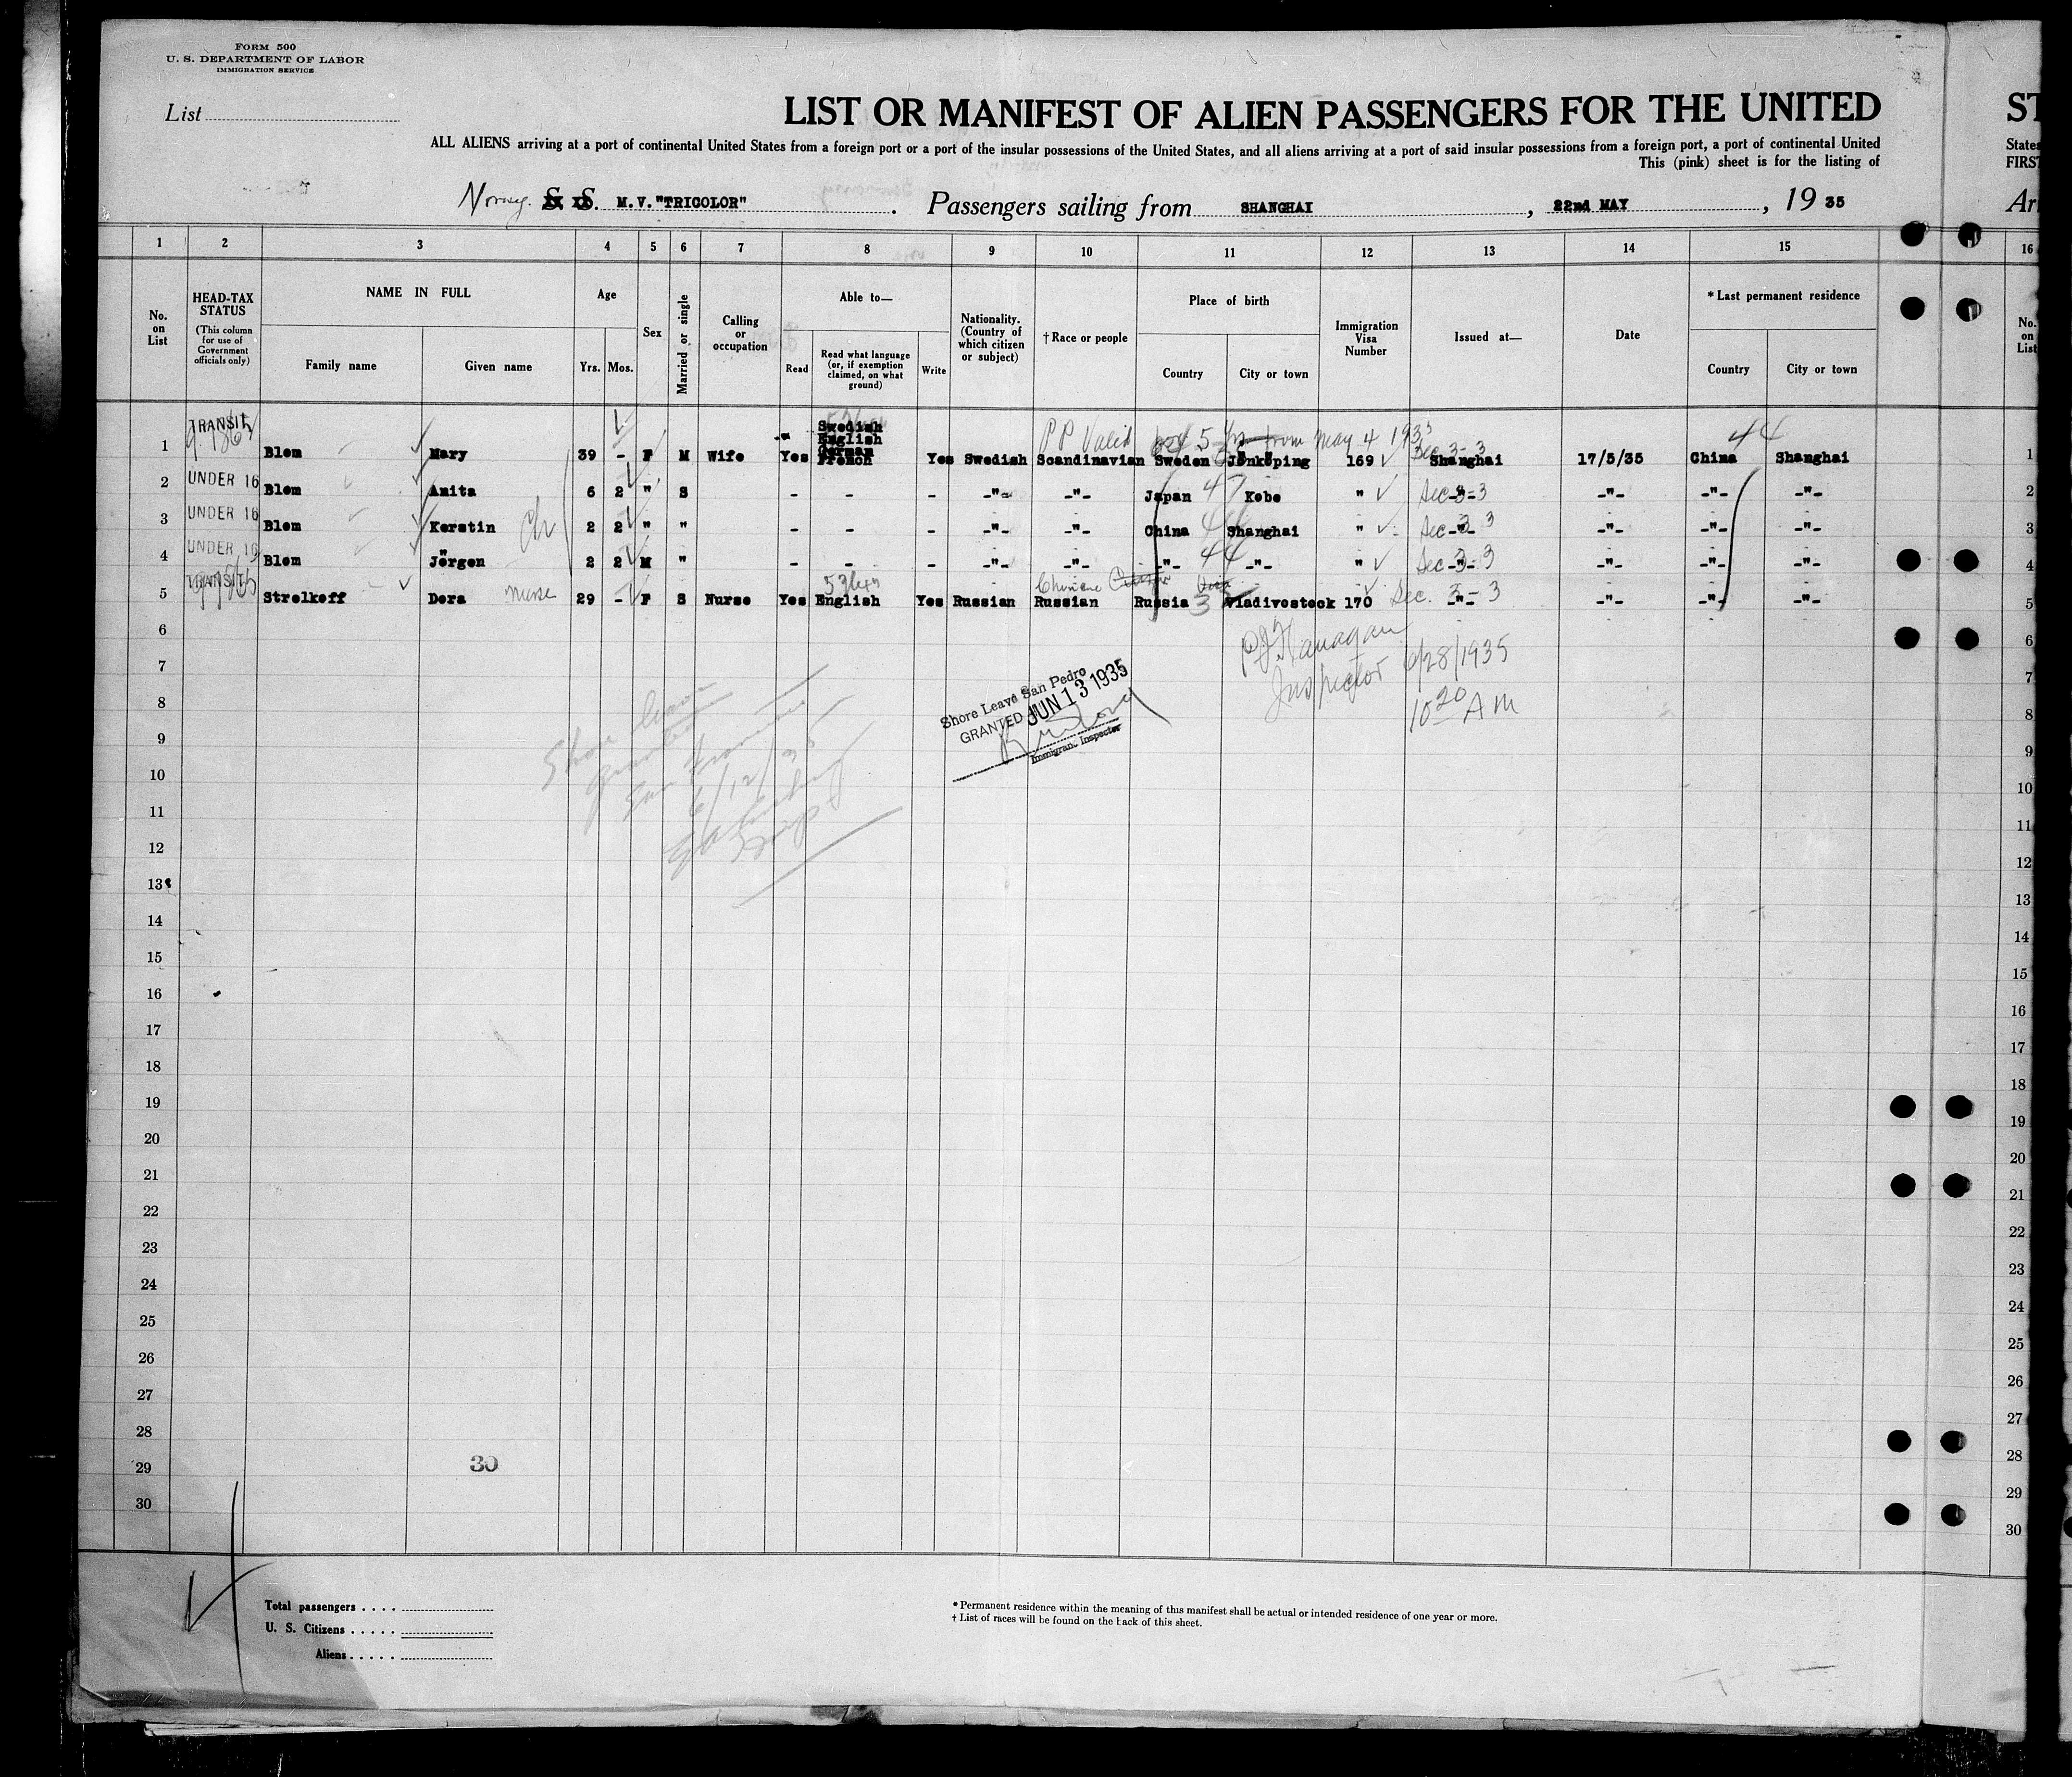 FORM 500
U. S. DEPARTMENT OF LABOR
IMMIGRATION SERVICE
List
LIST OR MANIFEST OF ALIEN PASSENGERS FOR THE UNITED
ST
ALL ALIENS arriving at a port of continental United States from a foreign port or a port of the insular possessions of the United States, and all aliens arriving at a port of said insular possessions from a foreign port, a port of continental United
States
This (pink) sheet is for the listing of
FIRST
Norweg. S. S. M.V."TRICOLOR" . Passengers sailing from SHANGHAI , 22nd MAY , 19 35
Arr
1 2 3 4 5 6 7 8 9 10 11 12 13 14 15 16
No. on List
HEAD-TAX STATUS (This column for use of Government officials only)
NAME IN FULL
Family name
Given name
Age
Yrs. Mos.
Sex
Married or single
Calling or occupation
Able to—
Read
Read what language (or, if exemption claimed, on what ground)
Write
Nationality. (Country of which citizen or subject)
† Race or people
Place of birth
Country
City or town
Immigration Visa Number
Issued at—
Date
* Last permanent residence
Country
City or town
No. on List
TRANSIT PP Valid for 5 Yrs from May 4 1933 44
1 Blom Mary 39 - F M Wife Yes Swedish English German French Yes Swedish Scandinavian Sweden Jönköping 169 Sec 3-3 Shanghai 17/5/35 China Shanghai 1
2 UNDER 16 Blom Anita 6 2 " S - - - -"- -"- Japan 47 Kobe " Sec 3-3 -"- -"- -"- -"- 2
3 UNDER 16 Blom Kerstin Ch 2 2 " " - - - -"- -"- China 44 Shanghai " Sec 3 3 -"- -"- -"- -"- 3
4 UNDER 16 Blom Jörgen 2 2 M " - - - -"- -"- -"- 44 -"- " Sec 3-3 -"- -"- -"- -"- 4
TRANSIT Chinese
5 Strelkoff Dora nurse 29 - F S Nurse Yes English Yes Russian Russian Russia 3 Vladivostock 170 Sec. 3-3 -"- -"- -"- -"- 5
6 6
7 7
8 8
9 9
10 10
11 11
12 12
13 13
14 14
15 15
16 16
17 17
18 18
19 19
20 20
21 21
22 22
23 23
24 24
25 25
26 26
27 27
28 28
29 29
30 30
P J Flanagan
Inspector 6/28/1935
10 20 AM
Shore Leave San Pedro
GRANTED JUN 13 1935
Immigrant Inspector
Shore leave
granted
San Francisco
6/12/35
30
Total passengers
U. S. Citizens
Aliens
* Permanent residence within the meaning of this manifest shall be actual or intended residence of one year or more.
† List of races will be found on the back of this sheet.